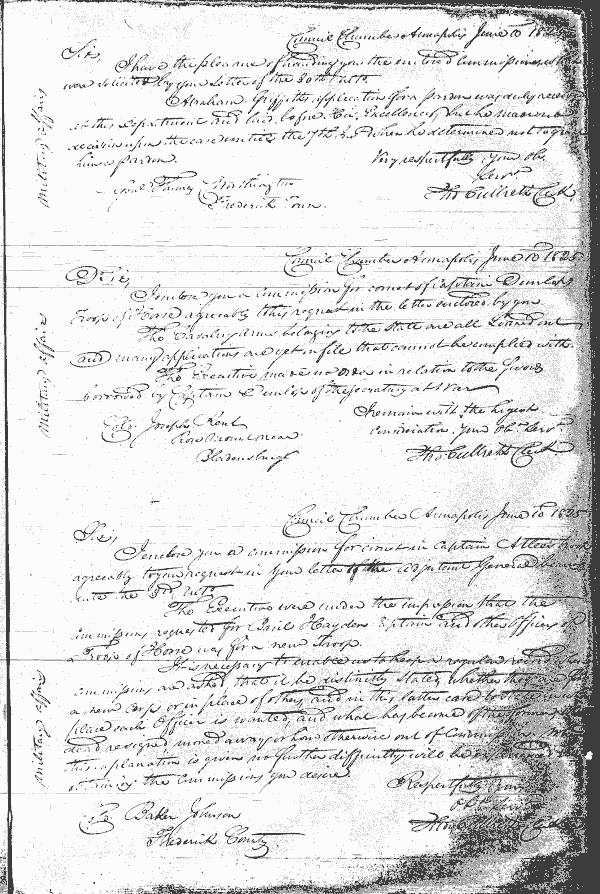 Council Chamber Annapolis June 10 1825
Sir,
I have the pleasure of handing you the enclosed Commissions which
was solicited by your Letter of the 30th Ulto.
Abraham Griffiths application for a pardon was duly received
at this Department and laid before His Excellency, but he made no
decision upon the case until the 7th when he determined not to grant
him a pardon.
Very respectfully Your Ob.
Servt.
Tho Culbreth Clk
Worthington
Frederick Town.
Military affairs
Council Chamber Annapolis June 10 1825
Dr Sir,
I enclose you a commission for cornet of Captain Dunlaps
Troop of Horse agreeably to his request in the letter enclosed by you
The Cavalry arms belonging to the State are all Loaned out
and many applications are yet on file that cannot be complied with
The Executive made no order in relation to the Swords
borrowed by Captain Dunlop of the Secretary at War
I remain with the highest
consideration Your Ob. Servt.
Tho. Culbreth Clerk
Colo. Joseph Kent
Bladensburgh
Military affairs
Council Chamber Annapolis June 10 1825
Sir,
I enclose you a commission for cornet in Captain Atlees troop
agreeably to your request in your letter to the Adjutant General
date the 3rd Ulto
The Executive were under the impression that the
commissions requested for Basil Hayden Captain and other Officers of
a Troop of Horse was for a new Troop.
It is necessary to enable us to keep a regular record, when
commissions are asked that it be distinctly stated whether they are for
a new Corps or in place of others, and in this latter case to state in whose
place each Officer is wanted, and what has become of the former
dead, resigned, moved away, or how otherwise out of Commission
this explanation is given no further difficulty will be
obtaining the Commissions you desire
Respectfully Your
Ob. Servt.
Tho Culbreth Clk
Baker Johnson
Frederick County
Military affairs